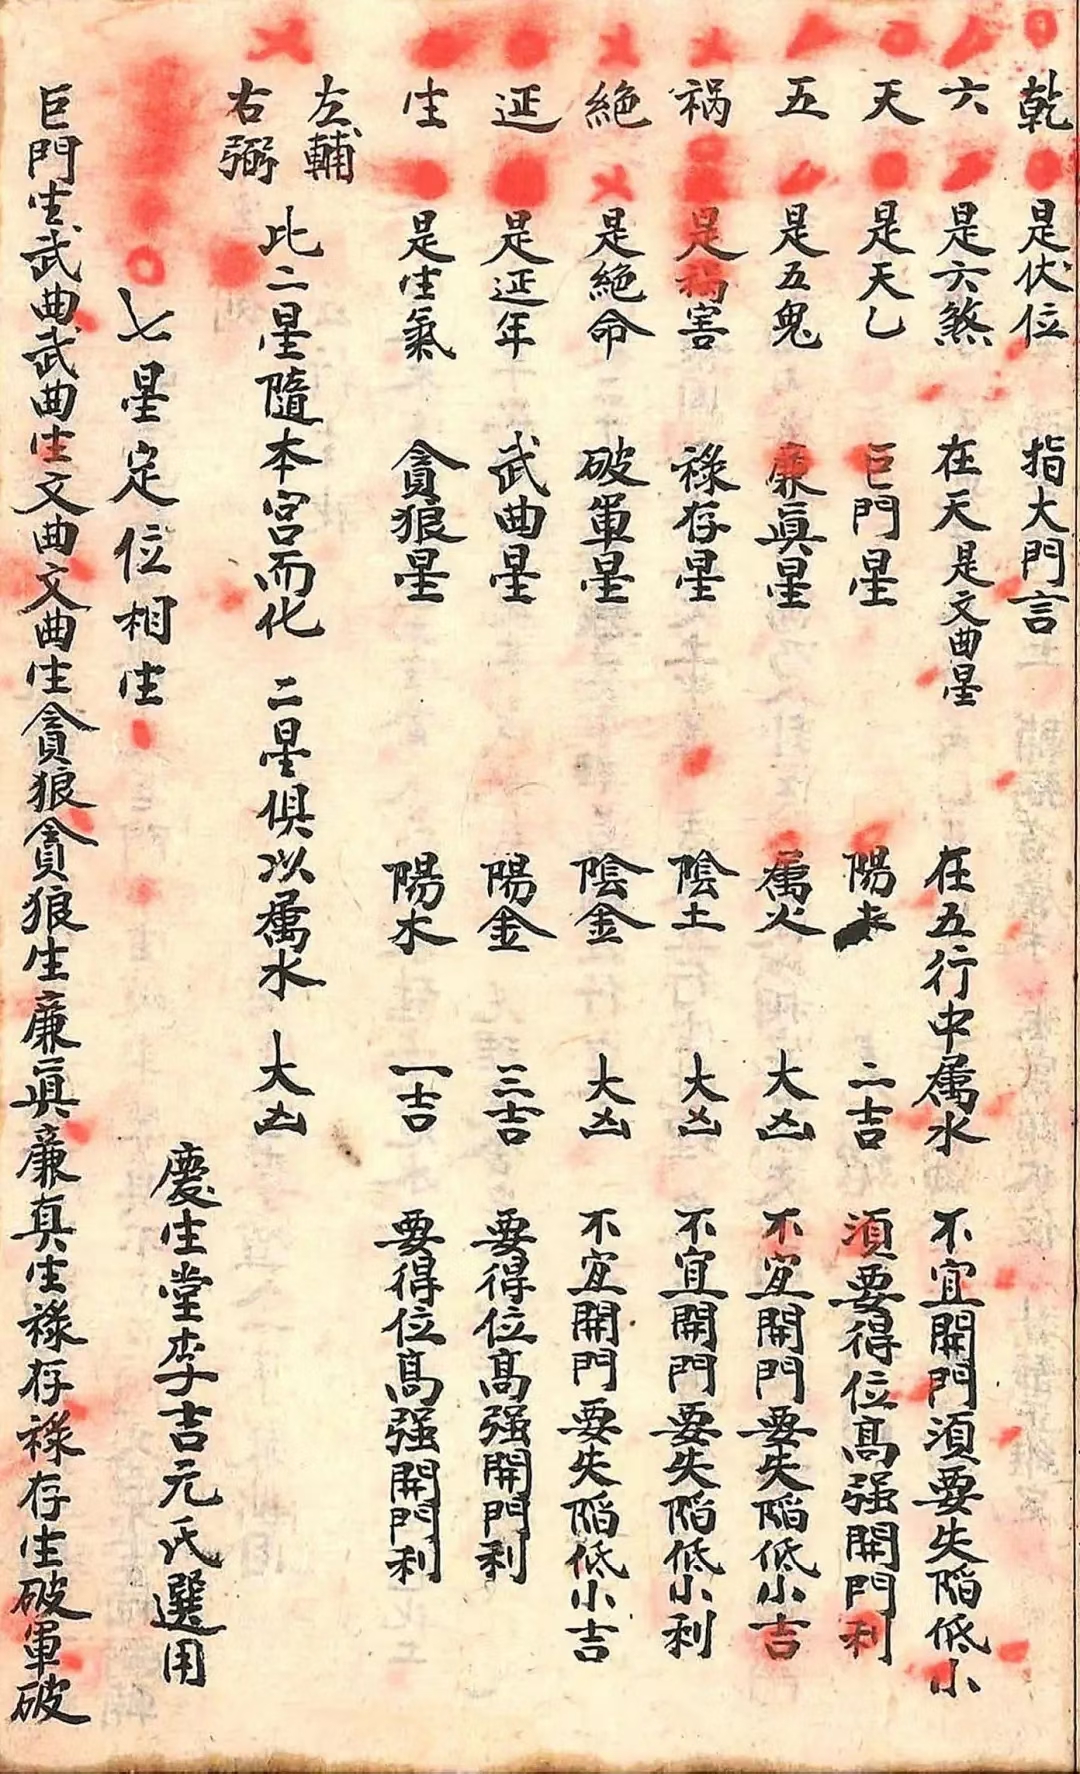 乾 是伏位 指大門言
六 是六煞 在天是文曲星 在五行中属水 不宜開門須要失陷低小
天 是天乙 巨門星 陽 二吉 須要得位高强開門利
五 是五鬼 廉眞星 属火 大凶 不宜開門要失陷低小吉
祸 是祸害 禄存星 陰土 大凶 不宜開門要失陷低小利
絕 是絕命 破軍星 陰金 大凶 不宜開門要失陷低小吉
延 是延年 武曲星 陽金 三吉 要得位高强開門利
生 是生氣 貪狼星 陽木 一吉 要得位高强開門利
左輔
右弼
比二星隨本宮而化 二星俱以属水 大凶
慶生堂李吉元氏選用
七星定位相生
巨門生武曲武曲生文曲文曲生貪狼貪狼生廉眞廉真生禄存禄存生破軍破